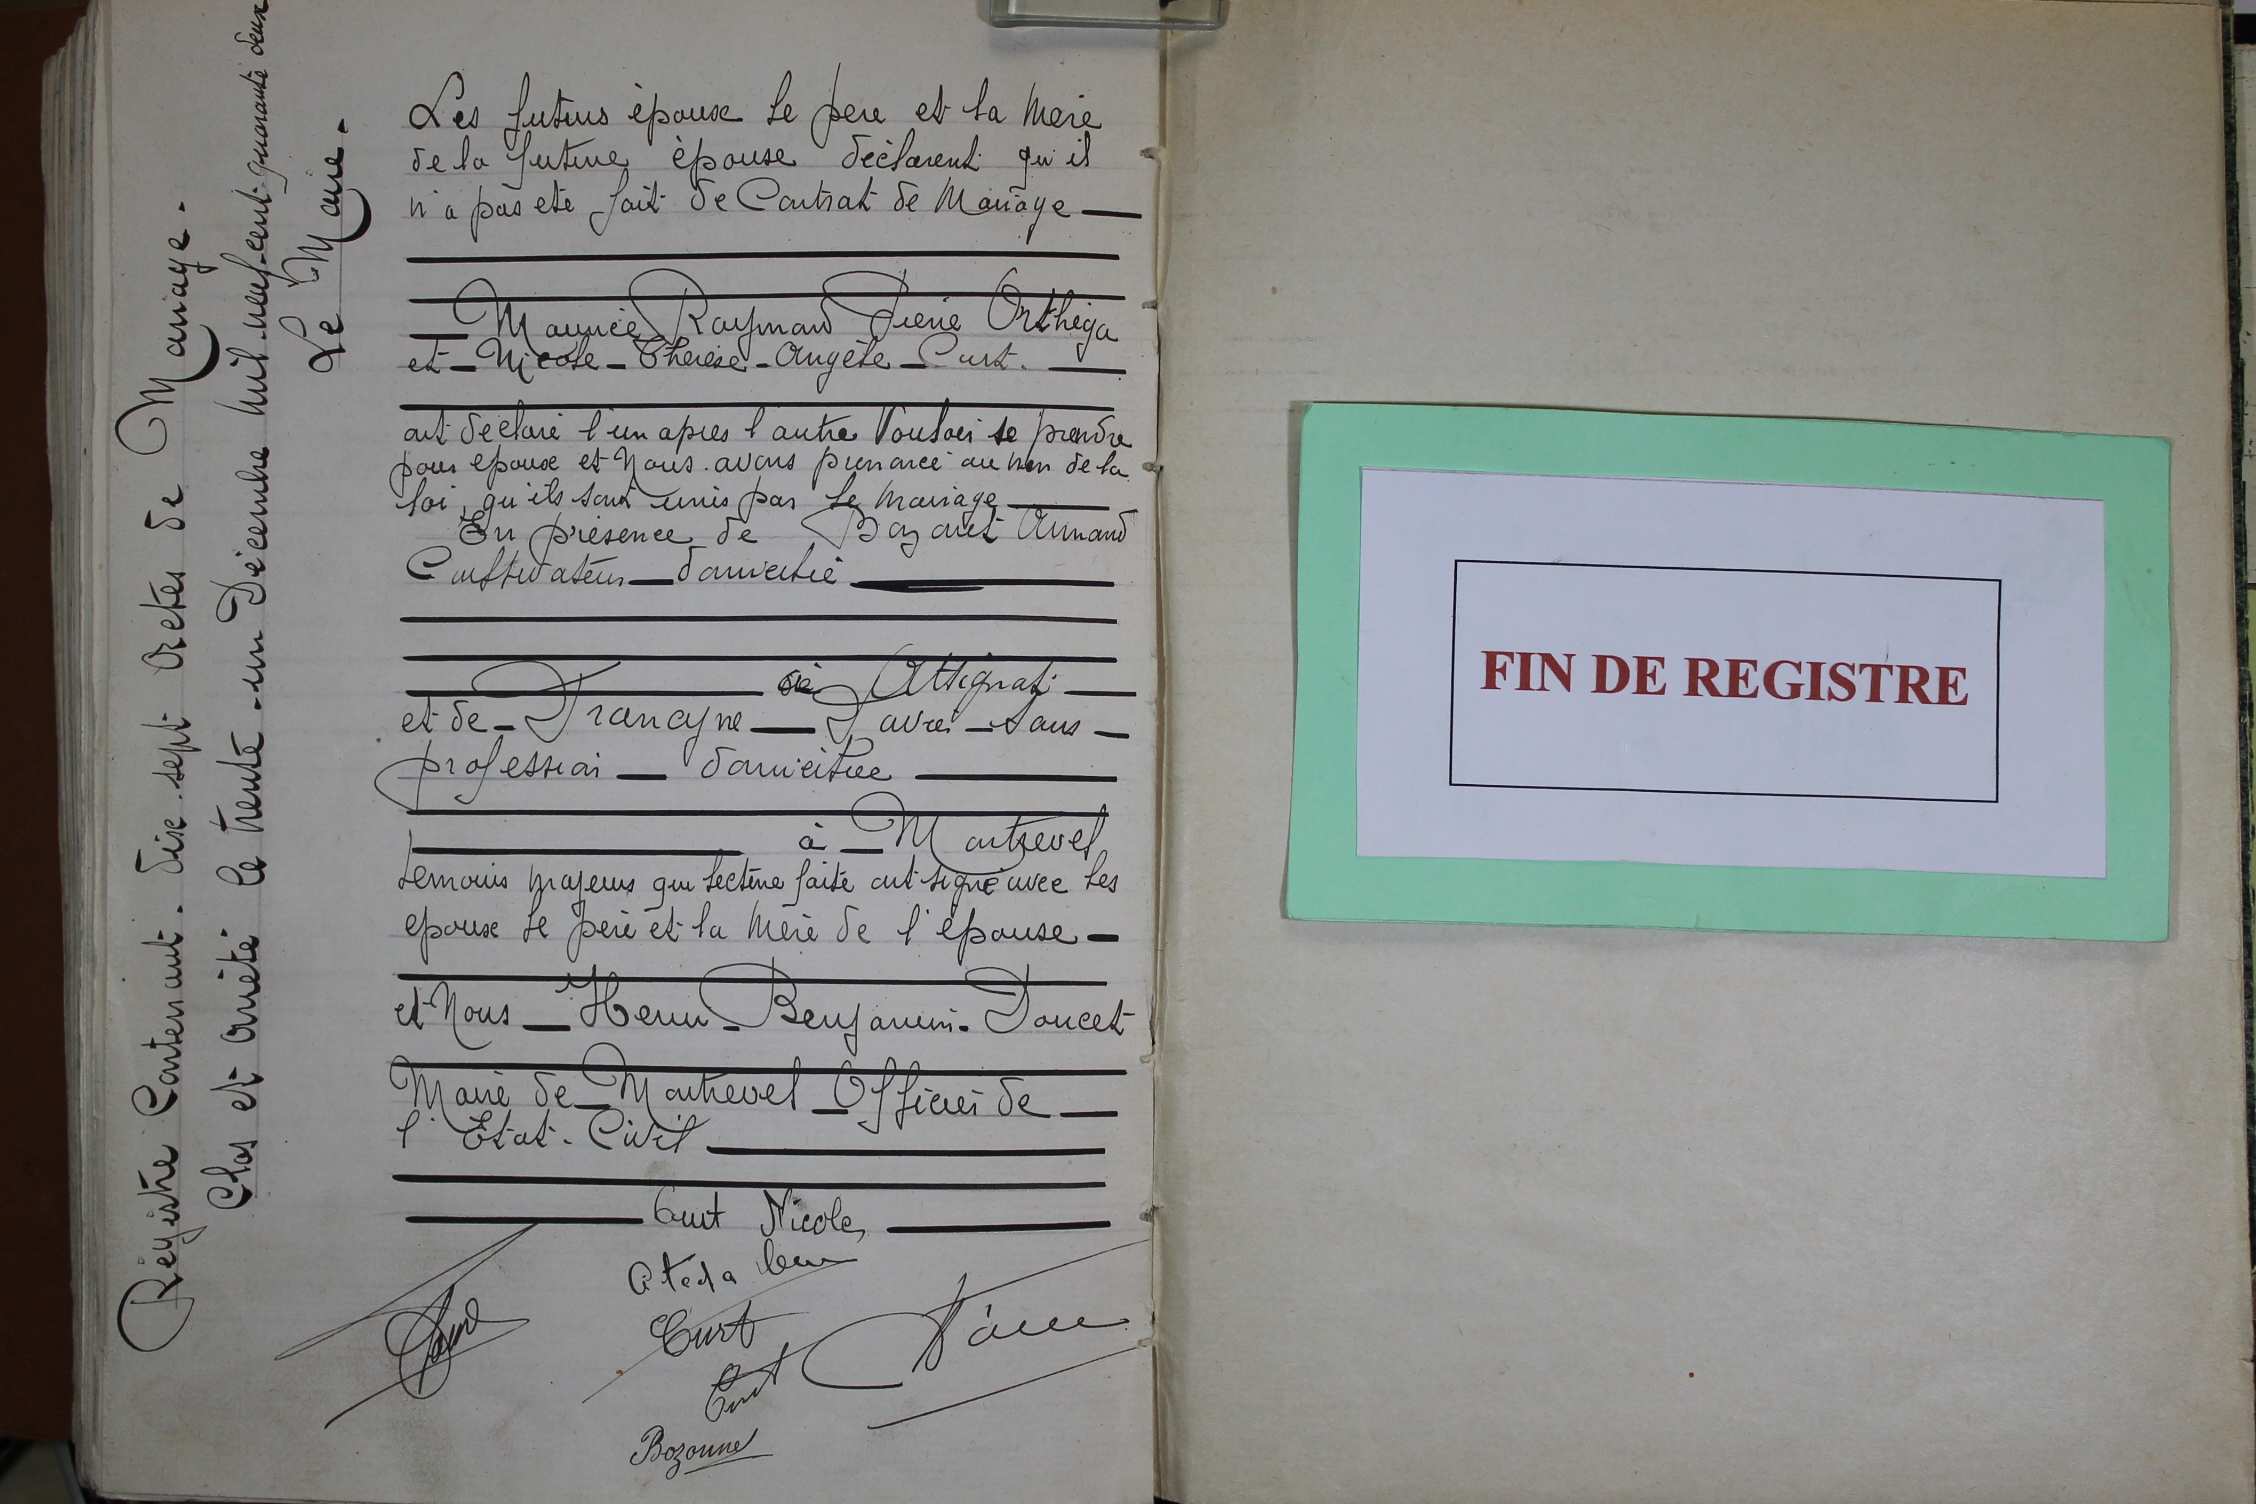 Registre Contenant. dix-sept Actes de Mariage.
Clos et arrêté le trente-un Décembre mil-neuf-cent-quarante deux
Le Maire.
Les futurs époux le père et la mère
de la future épouse déclarent qu'il
n'a pas été fait de Contrat de Mariage
Maurice Raymond Pierre Orthéga
et - Nicole - Thérèse - Angèle - Curt.
ont déclaré l'un après l'autre Vouloir se prendre
pour époux et Nous avons prononcé au nom de la
loi, qu'ils sont unis par le mariage
En présence de Bozonet Armand
Cultivateur domicilié
à Attignat
et de Francyne Favre sans
profession domiciliée
à Montrevel
témoins majeurs qui lecture faite ont signé avec les
époux le père et la mère de l'épouse
et Nous Henri - Benjamin - Doucet
Maire de Montrevel Officier de
l'État-Civil
Curt Nicole
Curt
Curt
Bozonnet
FIN DE REGISTRE